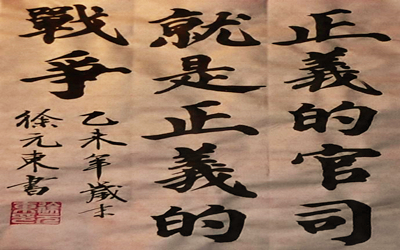 正義的官司
就是正義的
戰爭
乙未年歲末
徐元東書